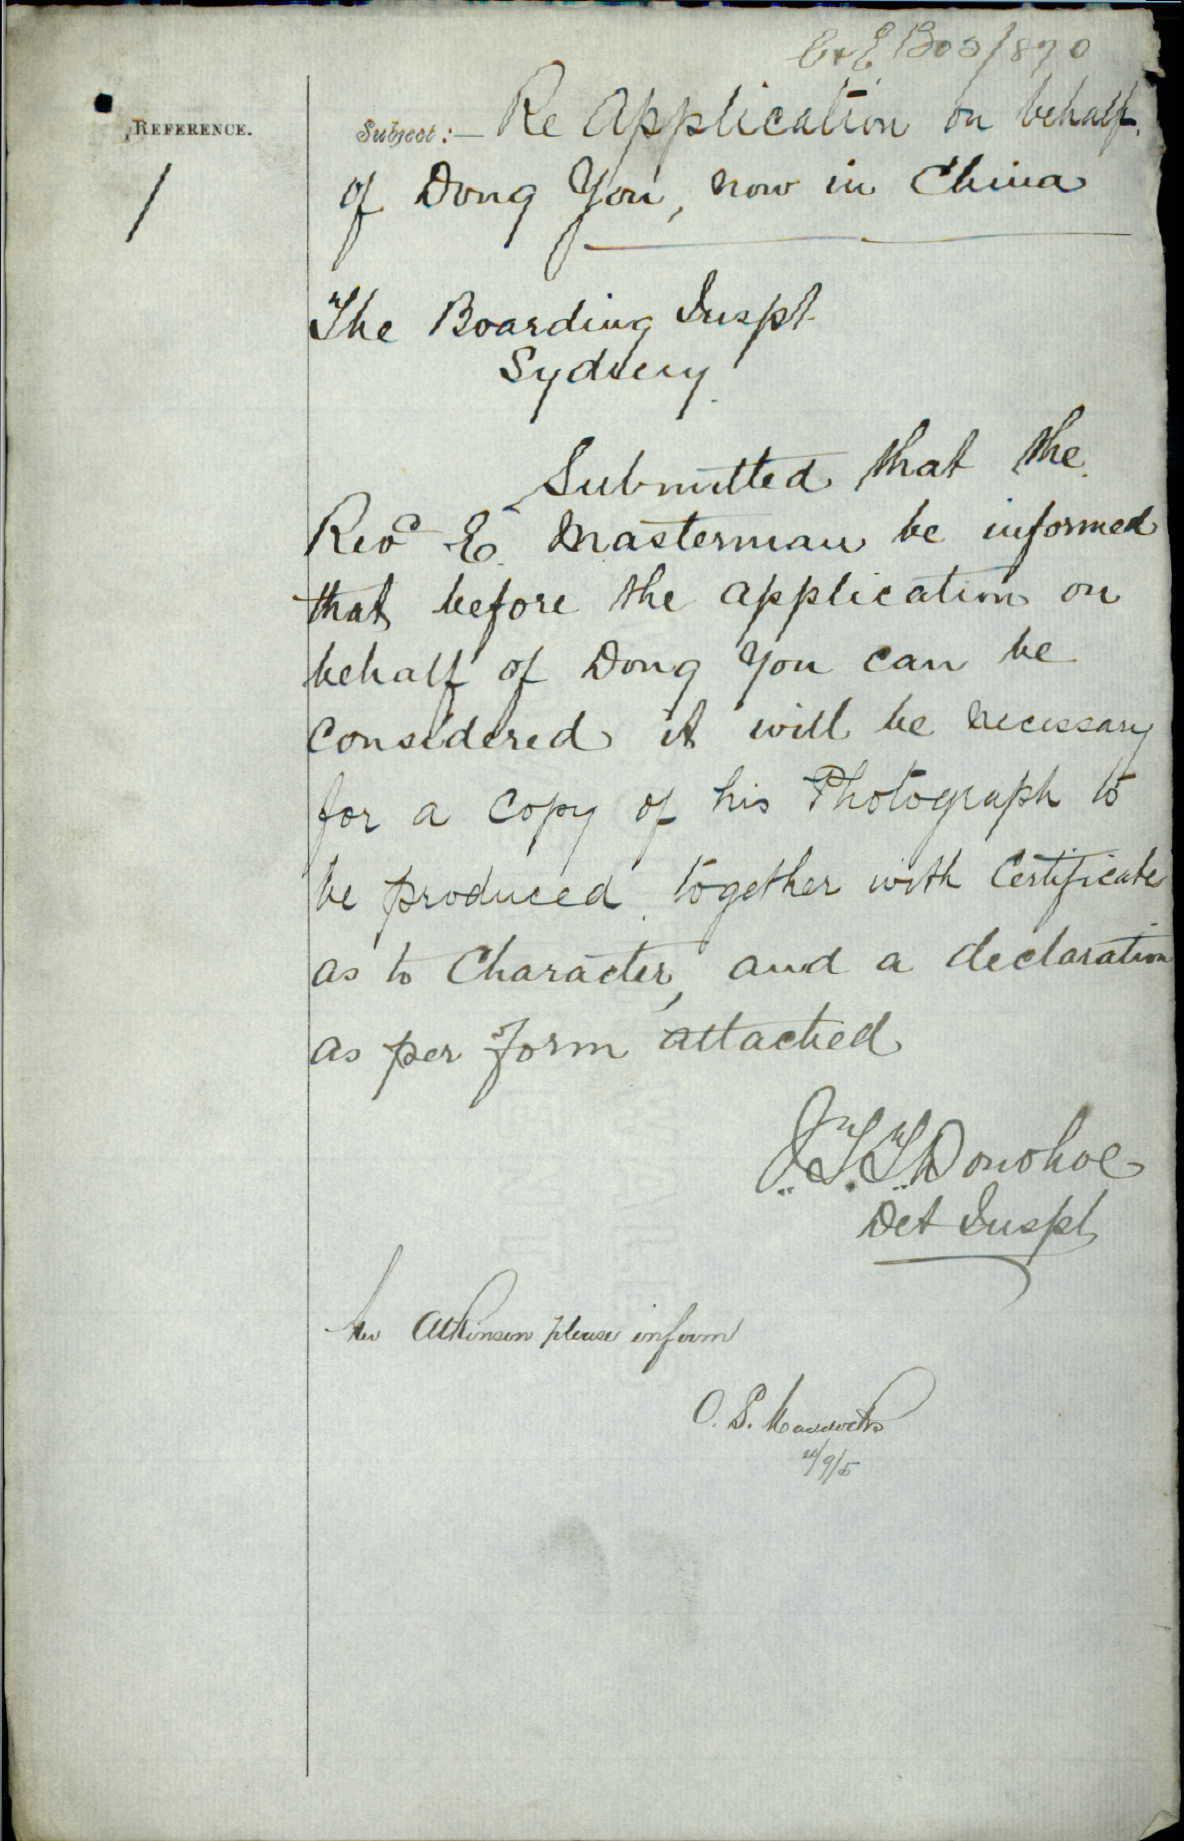 C & E B 03/890
REFERENCE.
Subject:— Re Application on behalf
of Dong You, now in China
1
The Boarding Inspt.
Sydney.
Submitted that the
Revd E. Masterman be informed
that before the application on
behalf of Dong You can be
considered it will be necessary
for a copy of his Photograph to
be produced together with Certificate
as to Character, and a declaration
as per Form attached
J.T.T. Donohoe
Det Inspt
Mr Atkinson please inform
O. S.
/9/5